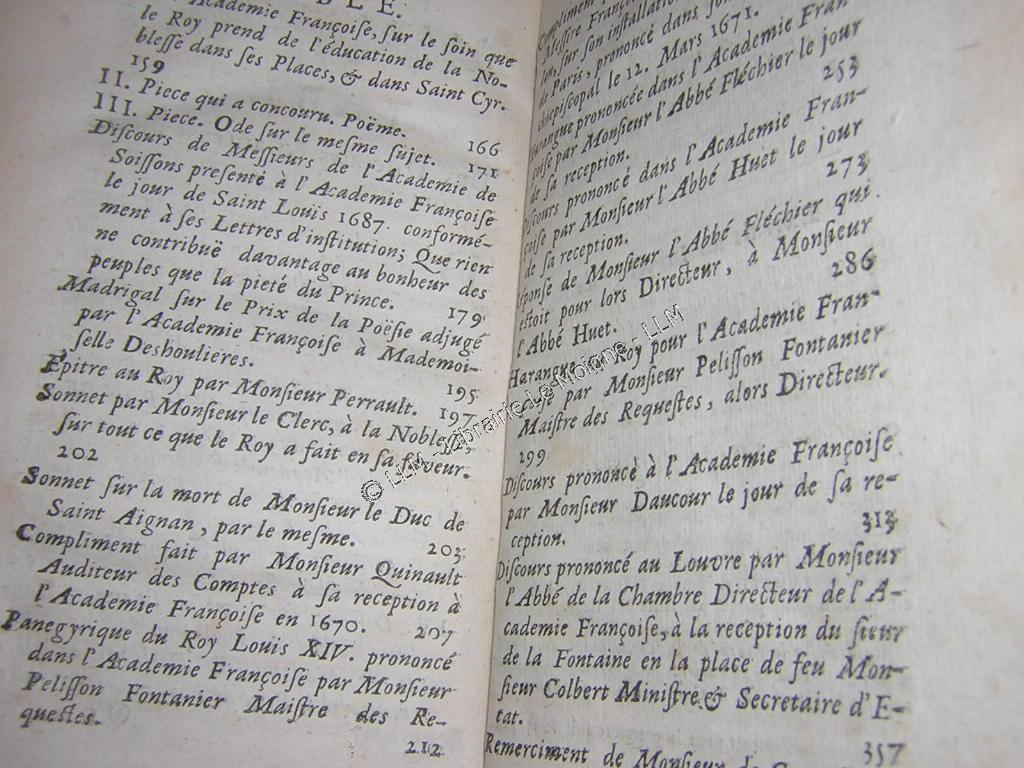 BLE.
Academie Françoise, sur le soin que
le Roy prend de l'éducation de la No-
blesse dans ses Places, & dans Saint Cyr.
159
II. Piece qui a concouru. Poëme. 166
III. Piece. Ode sur le mesme sujet. 171
Discours de Messieurs de l'Academie de
Soissons presenté à l'Academie Françoise
le jour de Saint Louïs 1687. conformé-
ment à ses Lettres d'institution; Que rien
ne contribuë davantage au bonheur des
peuples que la pieté du Prince. 179
Madrigal sur le Prix de la Poësie adjugé
par l'Academie Françoise à Mademoi-
selle Deshoulieres. 195
Epitre au Roy par Monsieur Perrault. 197
Sonnet par Monsieur le Clerc, à la Noblesse,
sur tout ce que le Roy a fait en sa faveur.
202
Sonnet sur la mort de Monsieur le Duc de
Saint Aignan, par le mesme. 203
Compliment fait par Monsieur Quinault
Auditeur des Comptes à sa reception à
l'Academie Françoise en 1670. 207
Panegyrique du Roy Louis XIV. prononcé
dans l'Academie Françoise par Monsieur
Pelisson Fontanier Maistre des Re-
questes. 212
Compliment
Messire François
sur son installation
Paris, prononcé dans son
chiepiscopal le 12. Mars 1671.
Harangue prononcée dans l'Academie Fran-
çoise par Monsieur l'Abbé Fléchier le jour
de sa reception. 253
Discours prononcé dans l'Academie Fran-
çoise par Monsieur l'Abbé Huet le jour
de sa reception. 273
Réponse de Monsieur l'Abbé Fléchier qui
estoit pour lors Directeur, à Monsieur
l'Abbé Huet. 286
Harangue au Roy pour l'Academie Fran-
çoise par Monsieur Pelisson Fontanier
Maistre des Requestes, alors Directeur.
299
Discours prononcé à l'Academie Françoise
par Monsieur Daucour le jour de sa re-
ception. 313
Discours prononcé au Louvre par Monsieur
l'Abbé de la Chambre Directeur de l'A-
cademie Françoise, à la reception du sieur
de la Fontaine en la place de feu Mon-
sieur Colbert Ministre & Secretaire d'E-
tat. 357
Remerciment de Monsieur de
© LLM - Librairie Le Moigne - LLM